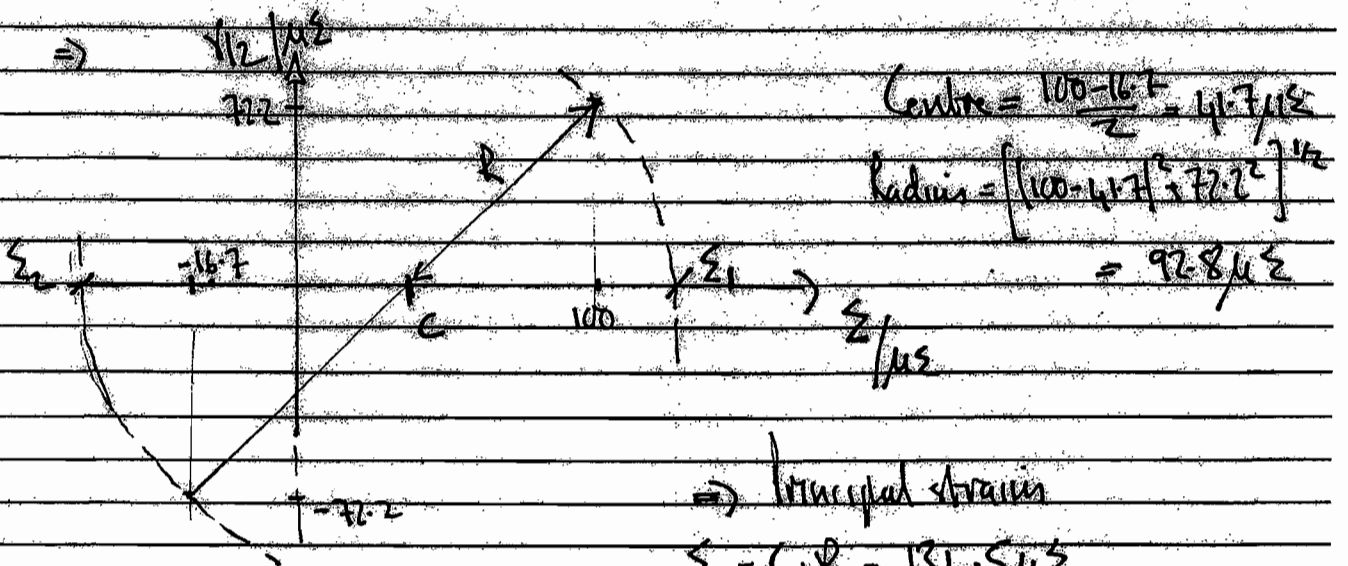 ⇒ γ/2 /με
72.2
Centre = (100-16.7)/2 = 41.7με
R
Radius = [(100-41.7)²+72.2²]^1/2
= 92.8με
ε2 -16.7 ε1
C 100 ε/με
-72.2
⇒ Principal strains